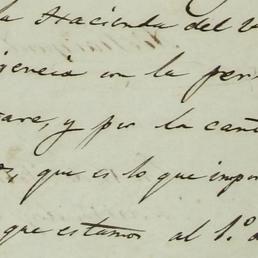 la Hacienda del V
igencia con la per
are, y por la can
que es lo que impor
que estamos al 1.º d